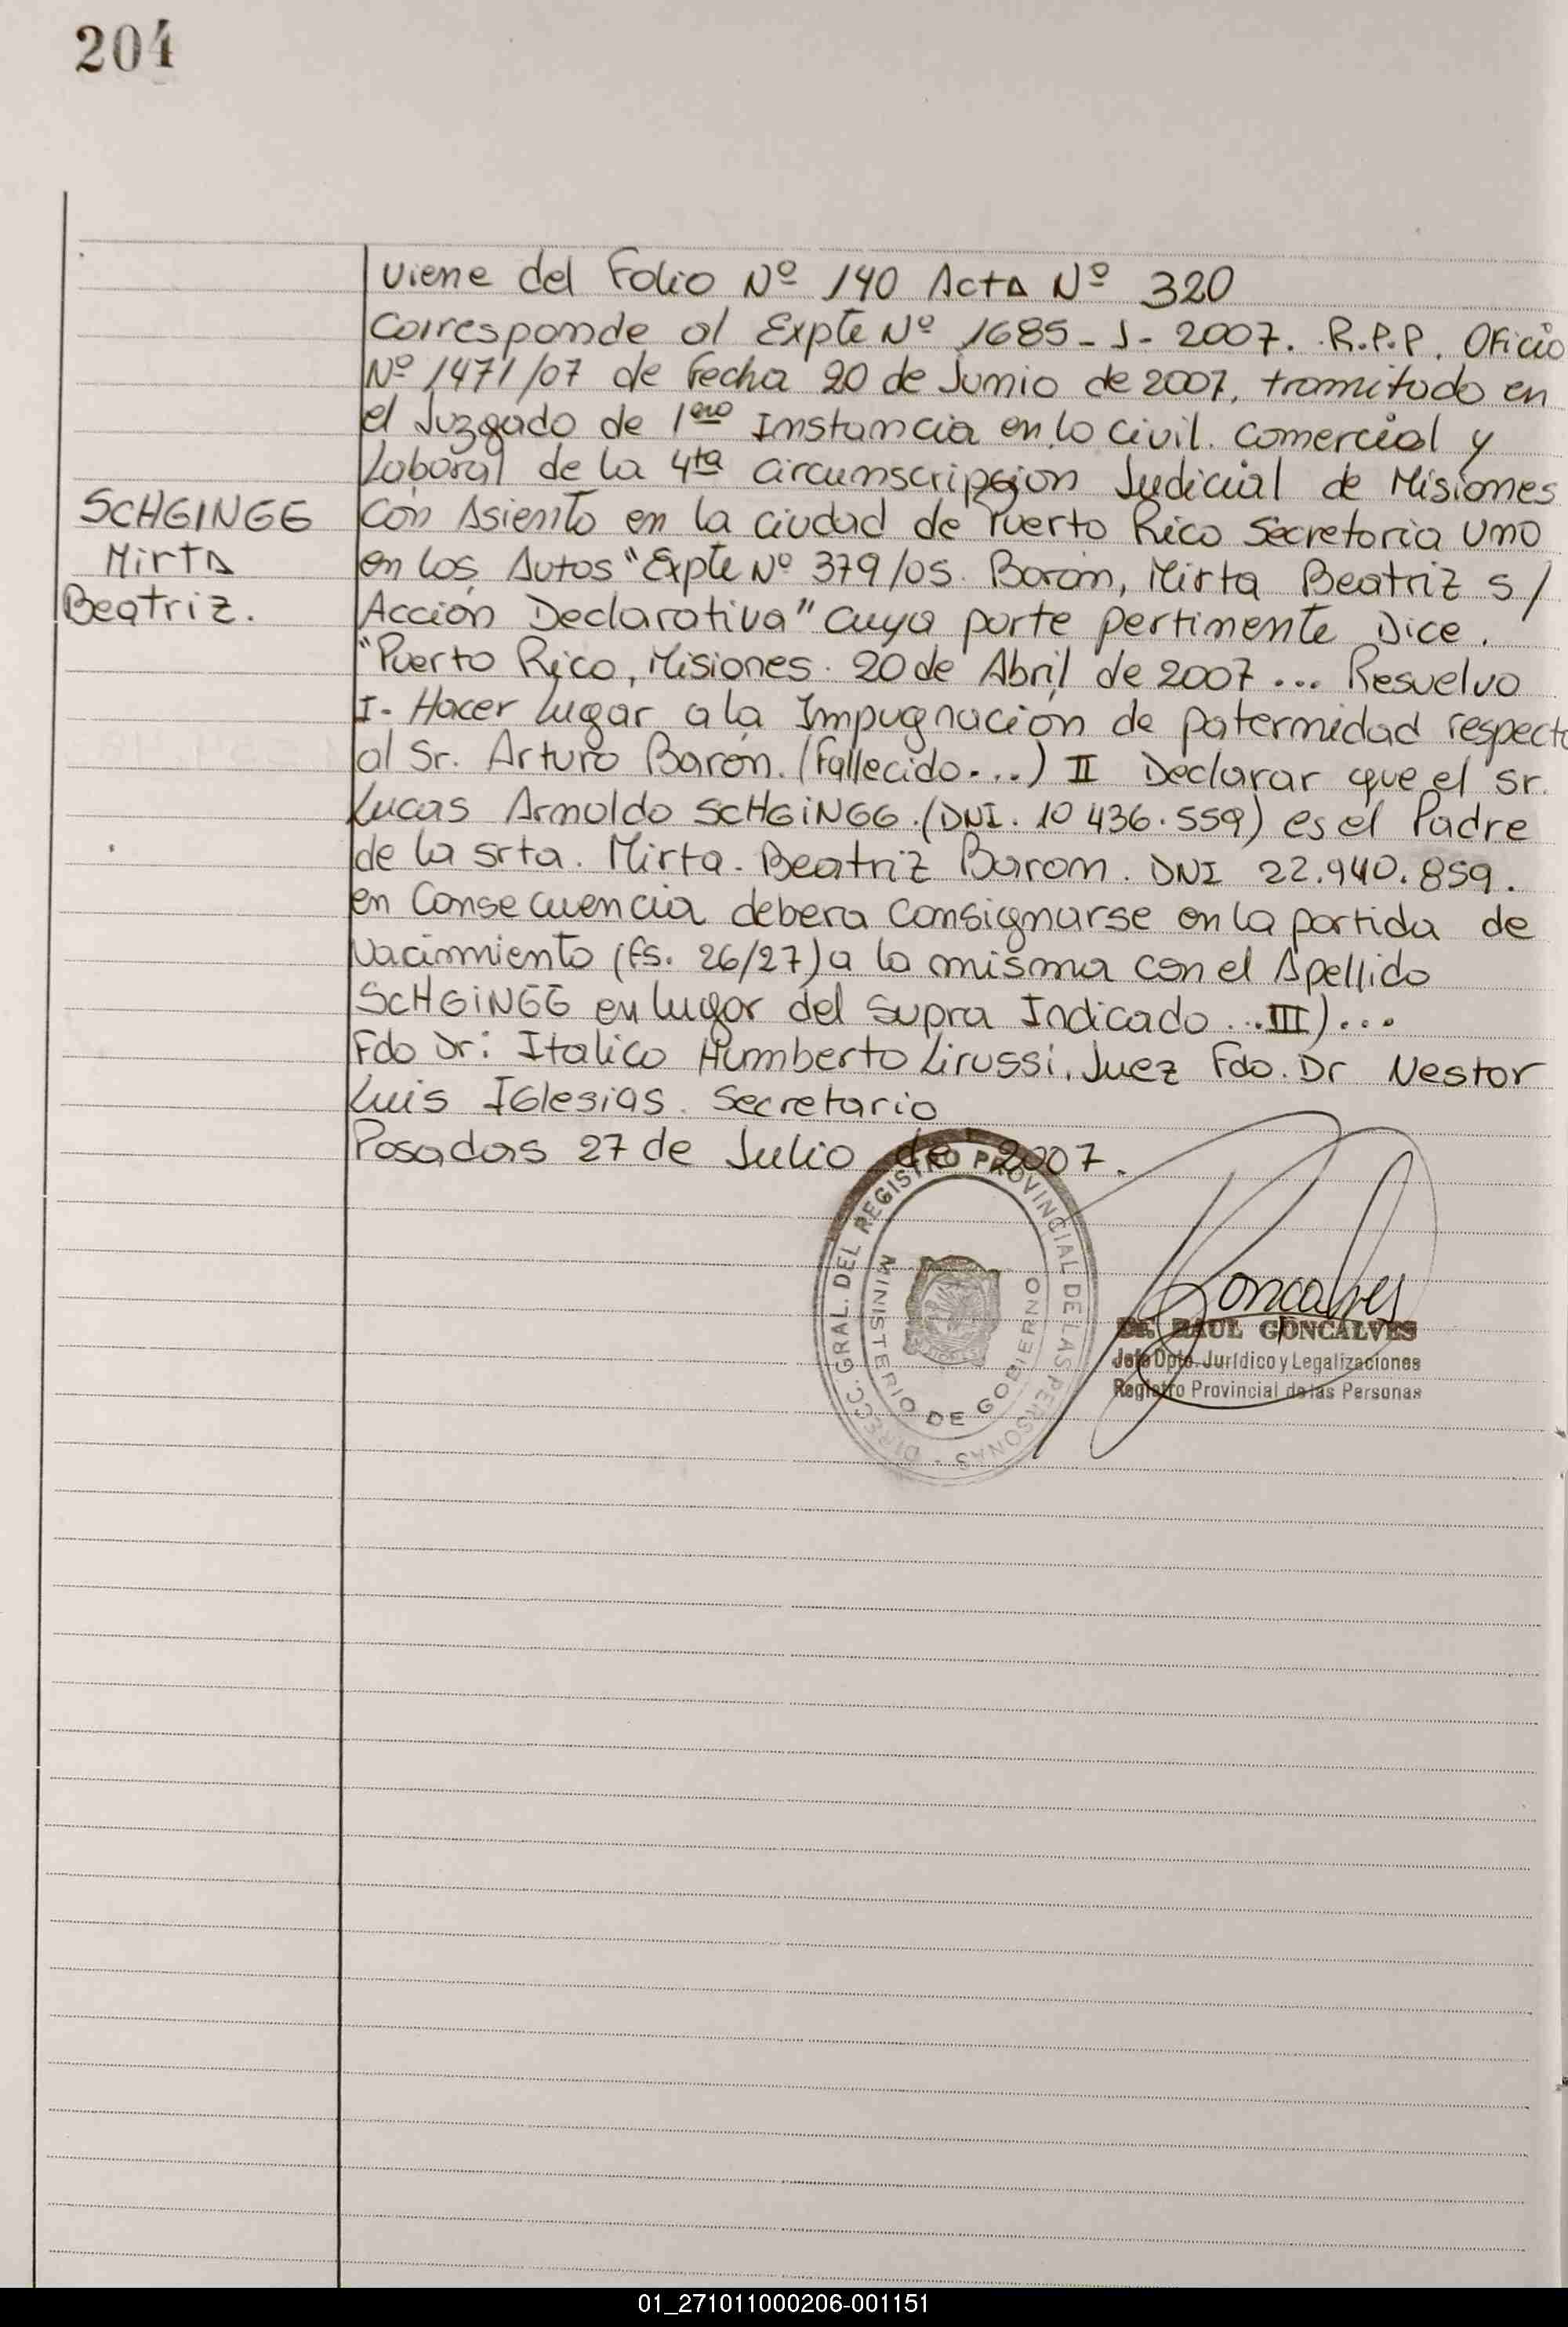 204
Viene del Folio Nº 140 Acta Nº 320
Corresponde al Expte Nº 1685-J-2007. R.P.P. Oficio
Nº 1471/07 de Fecha 20 de Junio de 2007, tramitado en
el Juzgado de 1ero Instancia en lo Civil. Comercial y
Laboral de la 4ta Circunscripcion Judicial de Misiones
SCHGINGG
Mirta
Beatriz.
Con Asiento en la ciudad de Puerto Rico Secretaria Uno
en los Autos "Expte Nº 379/05. Barón, Mirta Beatriz s/
Acción Declarativa" cuya parte pertinente Dice.
"Puerto Rico, Misiones. 20 de Abril de 2007... Resuelvo
I- Hacer lugar a la Impugnación de paternidad respecto
al Sr. Arturo Barón. (Fallecido...) II Declarar que el Sr.
Lucas Arnoldo SCHGINGG. (DNI. 10 436.559) es el Padre
de la srta. Mirta. Beatriz Baron. DNI 22.940.859.
en Consecuencia debera Consignarse en la partida de
Nacimiento (fs. 26/27) a la misma con el Apellido
SCHGINGG en lugar del supra Indicado ...III)...
Fdo Dr: Italico Humberto Lirussi, Juez Fdo. Dr Nestor
Luis Iglesias. Secretario
Posadas 27 de Julio de 2007.
DIRECC. GRAL. DEL REGISTRO PROVINCIAL DE LAS PERSONAS
MINISTERIO DE GOBIERNO
Goncalves
Dr. RAUL GONCALVES
Jefe Dpto. Jurídico y Legalizaciones
Registro Provincial de las Personas
01_271011000206-001151